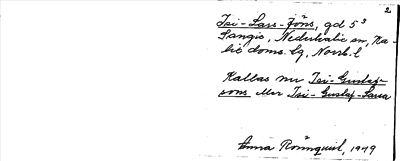 2
Isi-Lars-Jöns, gd 5³
Sangis, Nederkalix sn, Ka-
lix doms. lg, Norrb. l
Kallas nu Isi-Gustaf-
sons eller Isi-Gustaf-Lassa
Anna Rönnquist, 1949